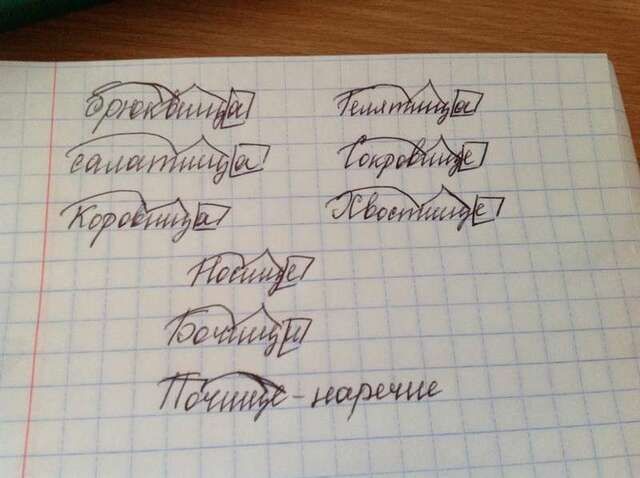 брюквища Телятища
салатища Сокровище
Коровища Хвостище
Носище
Бочищи
Почище - наречие